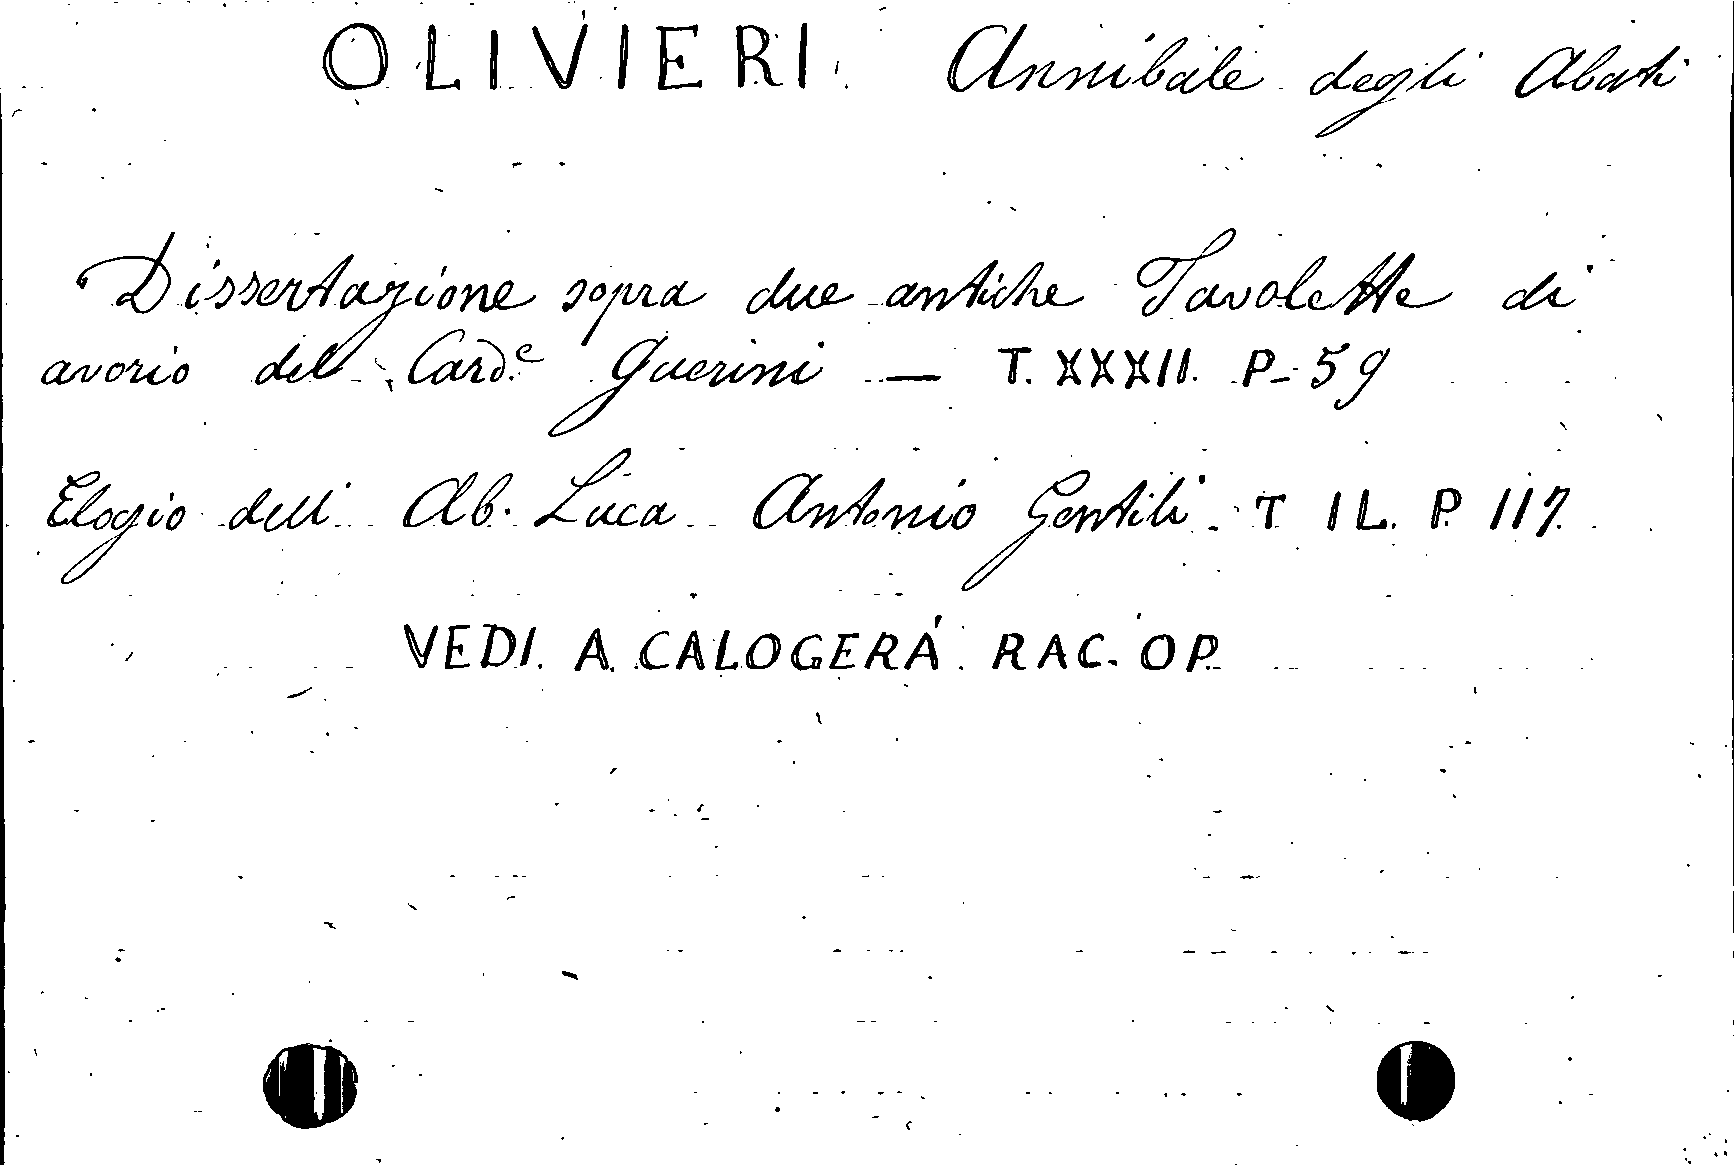 OLIVIERI Annibale degli Abati
Dissertazione sopra due antiche Tavolette di
avorio del Card.e Guerini — T. XXXII. P. 59
Elogio dell' Ab. Luca Antonio Gentili. T IL. P. 117.
VEDI. A. CALOGERÁ. RAC. OP.